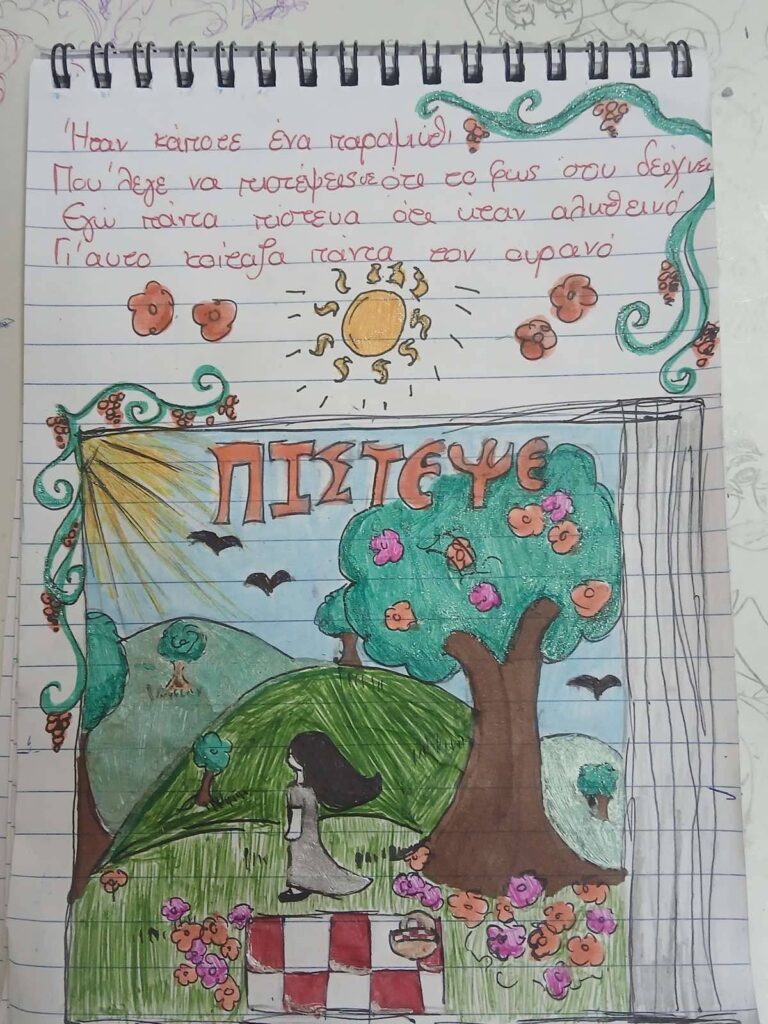 Ήταν κάποτε ένα παραμύθι
Που 'λεγε να πιστέψεις σε ότι το φως σου δείχνει
Εγώ πάντα πίστευα ότι ήταν αληθινό
Γι'αυτο κοίταζα πάντα τον ουρανό
ΠΙΣΤΕΨΕ